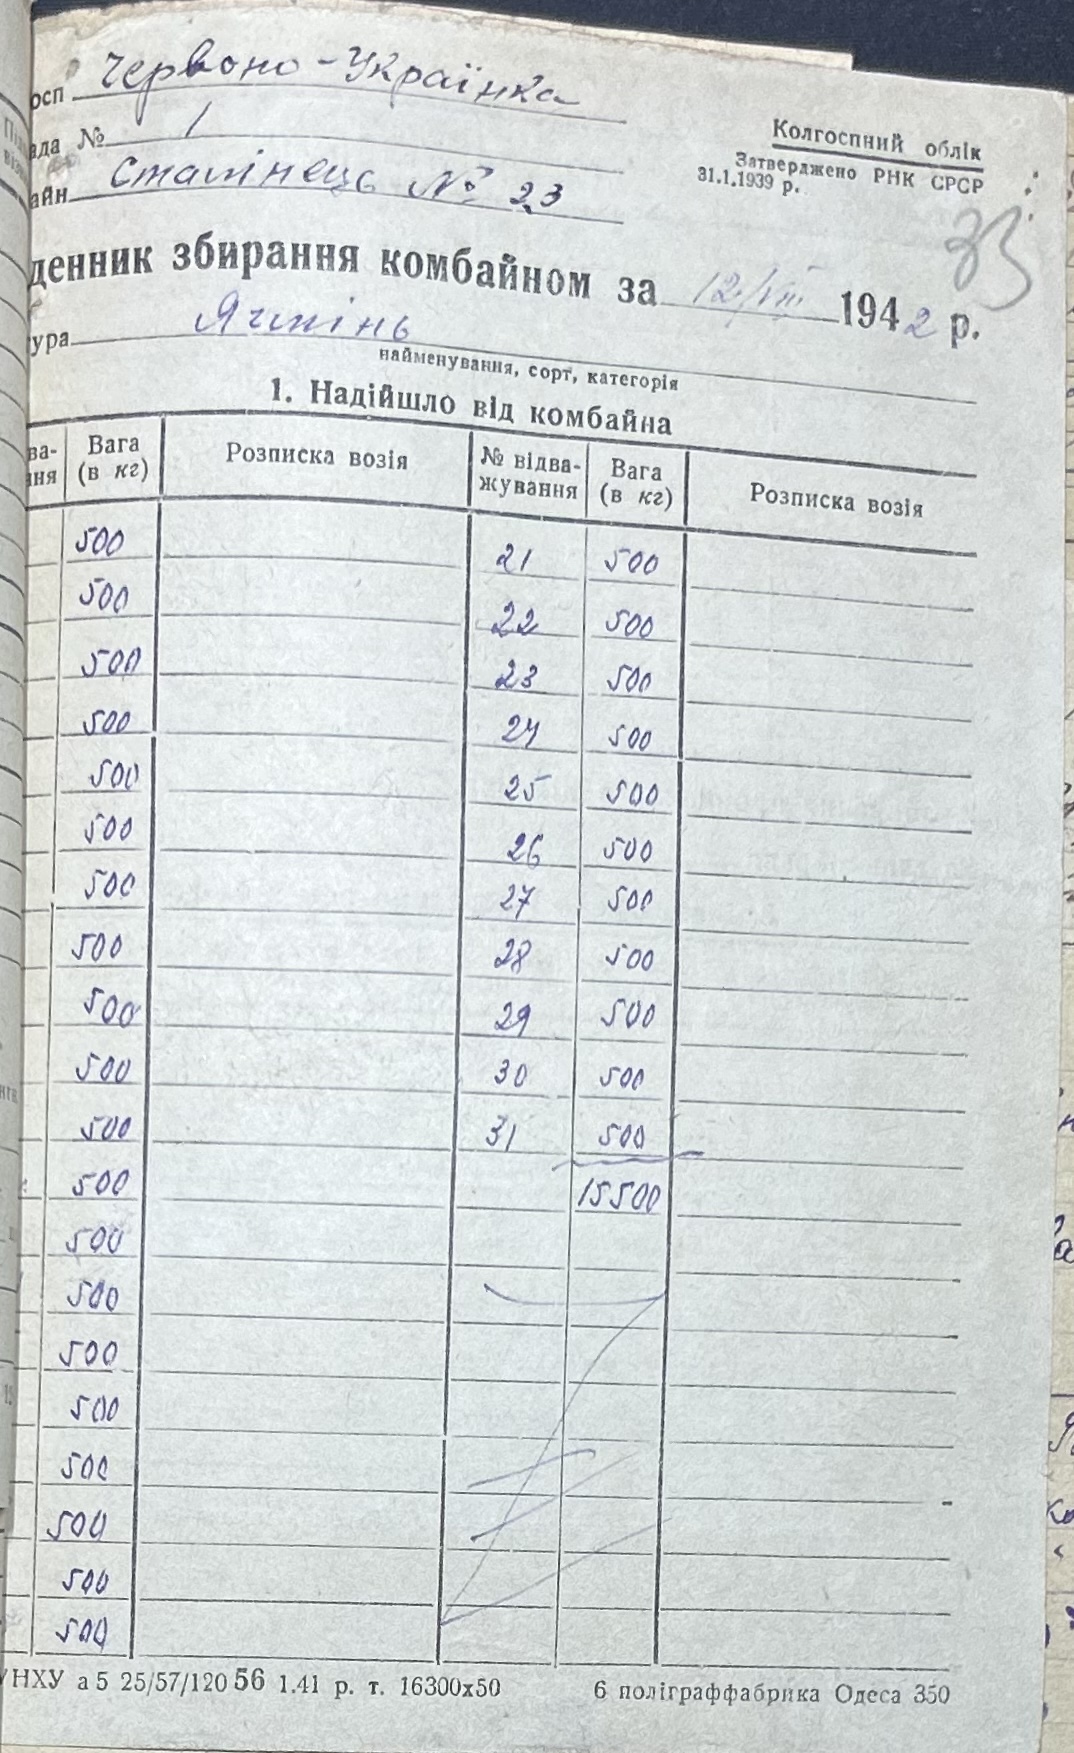 осп Червоно-Українка
ада № 1
айн Сталінець № 23
Колгоспний облік
Затверджено РНК СРСР
31.1.1939 р.
33
денник збирання комбайном за 12/VIII 1942 р.
ура Ячмінь
найменування, сорт, категорія
1. Надійшло від комбайна
ва-ння Вага (в кг) Розписка возія № відва-жування Вага (в кг) Розписка возія
500 21 500
500 22 500
500 23 500
500 24 500
500 25 500
500 26 500
500 27 500
500 28 500
500 29 500
500 30 500
500 31 500
500 15500
500
500
500
500
500
500
500
500
УНХУ а5 25/57/120 56 1.41 р. т. 16300х50 6 поліграффабрика Одеса 350